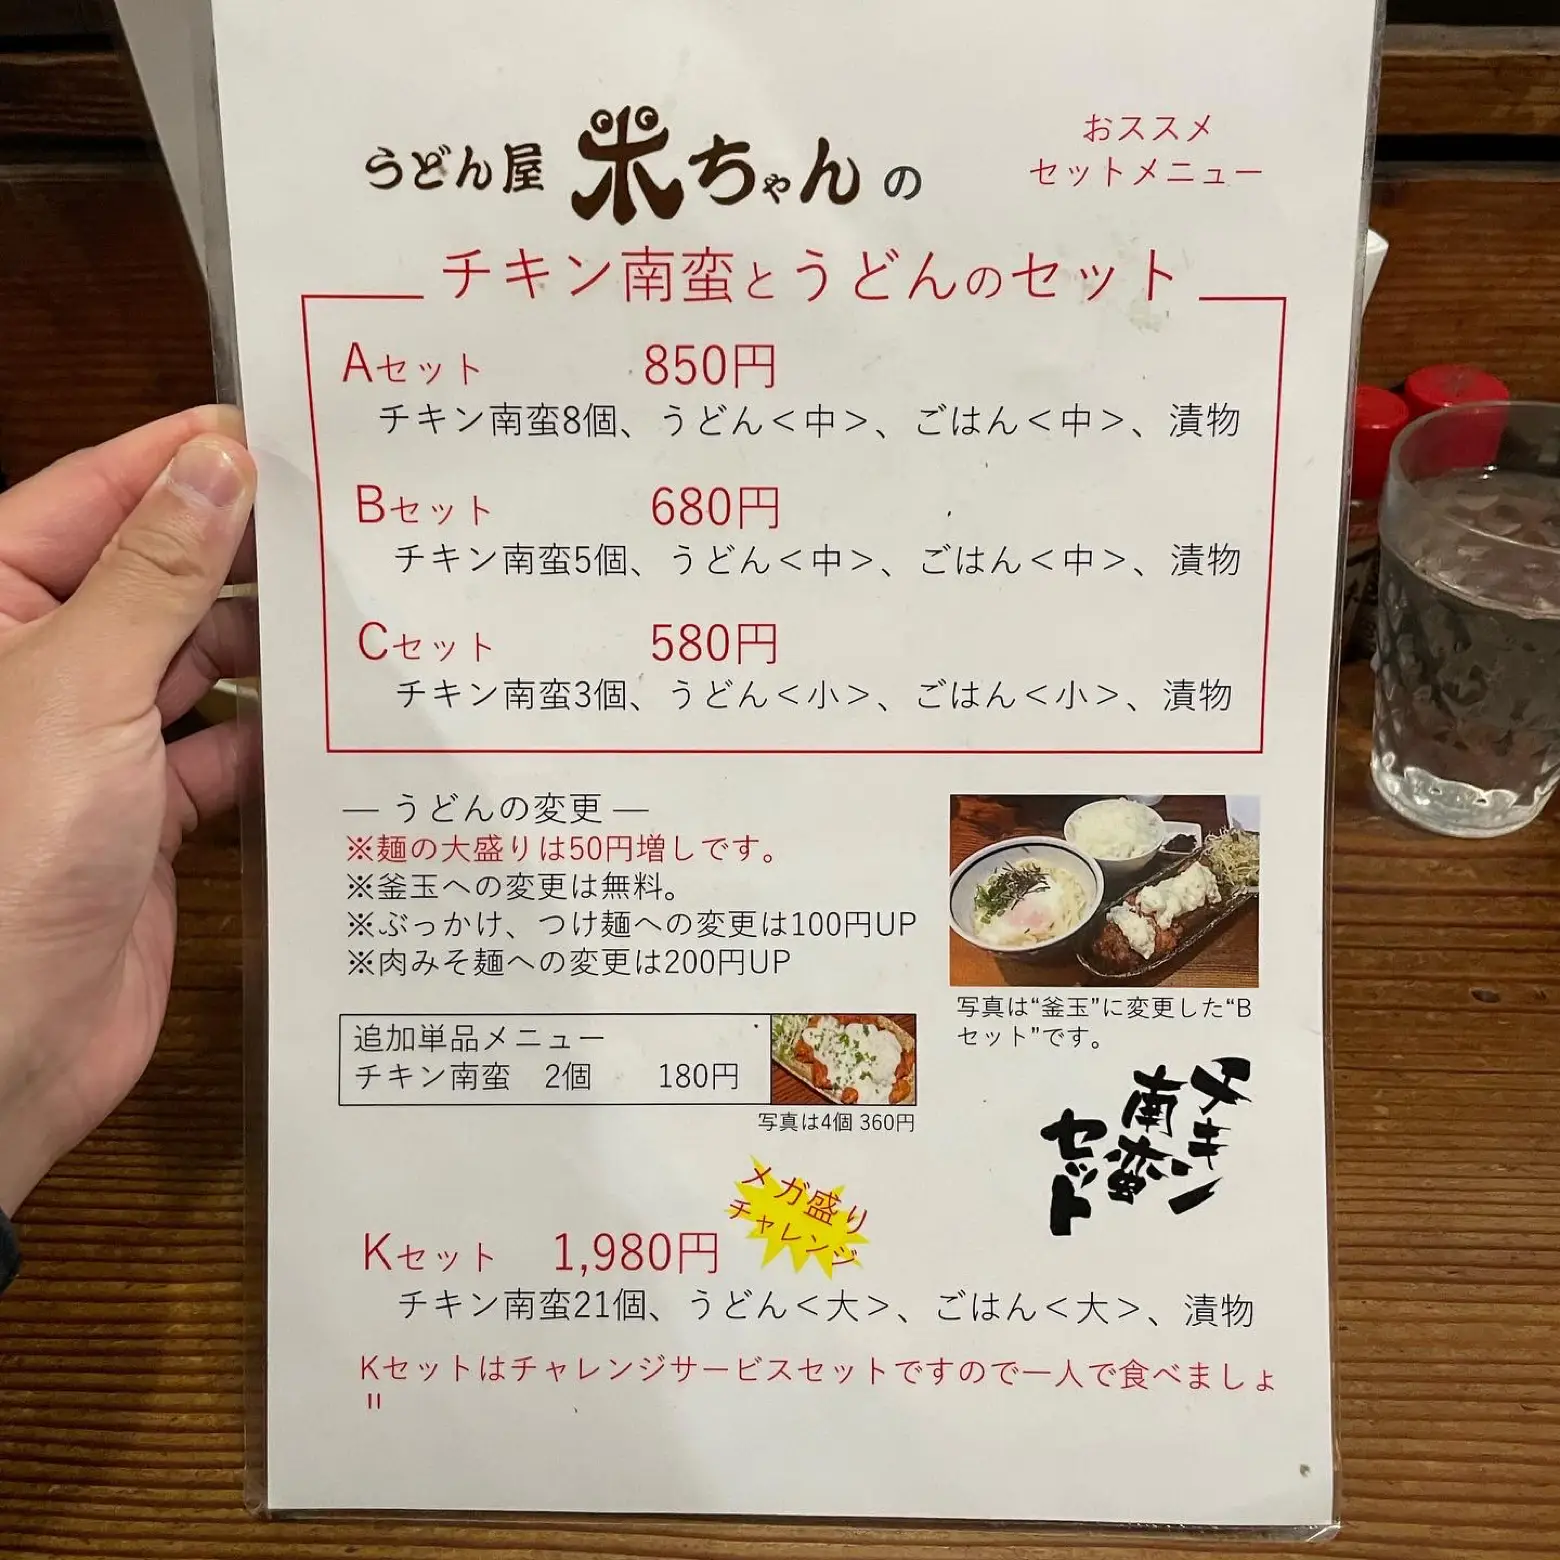 うどん屋 米ちゃんの
おススメ
セットメニュー
チキン南蛮とうどんのセット
Aセット 850円
チキン南蛮8個、うどん＜中＞、ごはん＜中＞、漬物
Bセット 680円
チキン南蛮5個、うどん＜中＞、ごはん＜中＞、漬物
Cセット 580円
チキン南蛮3個、うどん＜小＞、ごはん＜小＞、漬物
― うどんの変更 ―
※麺の大盛りは50円増しです。
※釜玉への変更は無料。
※ぶっかけ、つけ麺への変更は100円UP
※肉みそ麺への変更は200円UP
写真は“釜玉”に変更した“B
セット”です。
追加単品メニュー
チキン南蛮 2個 180円
写真は4個 360円
チキン
南蛮
セット
メガ盛り
チャレンジ
Kセット 1,980円
チキン南蛮21個、うどん＜大＞、ごはん＜大＞、漬物
Kセットはチャレンジサービスセットですので一人で食べましょ
"